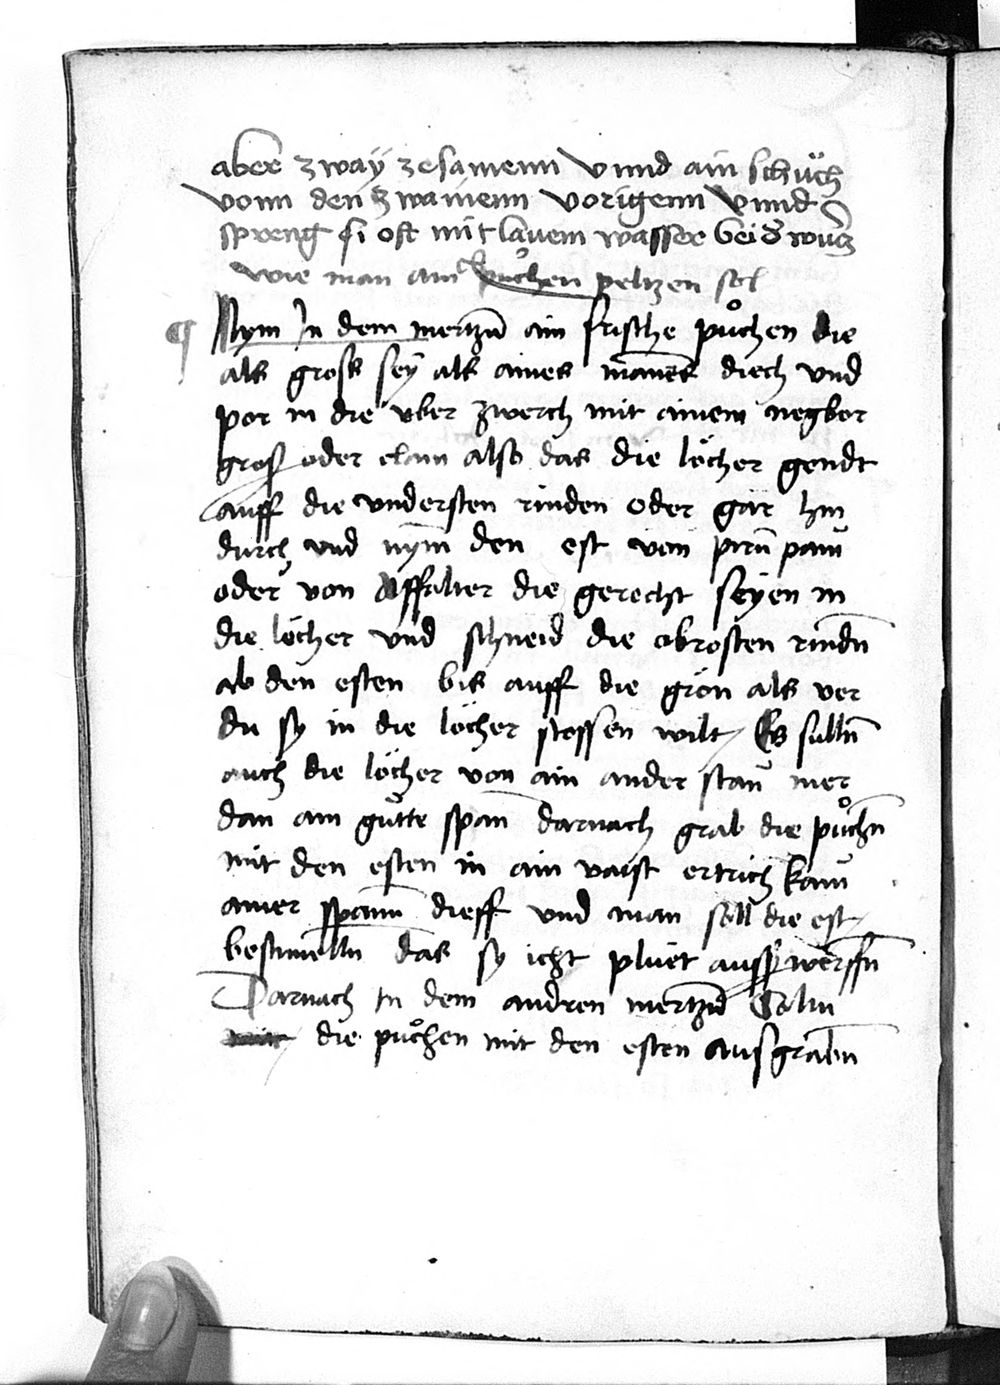 aber zway zesamenn vnnd ain schůch
vonn den zwaienn vorigenn vnnd
spreng si oft mit lauem wasser bei d wurcz
wie man ain půchen peltzen sol
¶ Nym In dem mertzn̄ ain frische půchen die
als gross sey als aines mannes diech vnd
por in die vber zwerch mit ainem negbor
gros oder clain also das die löcher gendt
auff die vndersten rinden oder gar hin
durch vnd nym den est von pirn̄ paum
oder von affalter die gerecht seyen in
die löcher vnd schneid die obrosten rindn̄
ab den esten bis auff die grön als ver
du sy in die löcher stossen wilt / Es sulln̄
auch die löcher von ain ander stan̄ mer
dan ain gůtte span darnach grab die půchn̄
mit den esten in ain vaist ertrich kaum
ainer spann dieff vnd man soll die est /
bestimelln̄ das sy icht plüet ausswerffn̄
Darnach In dem andren mertzn̄ Soltu
die půchen mit den esten ausgrabn̄